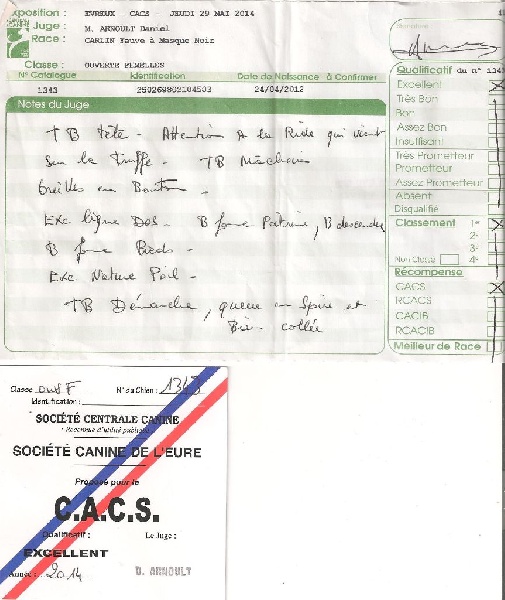 Exposition : EVREUX CACS - JEUDI 29 MAI 2014
Juge : M. ARNOULT Daniel
Race : CARLIN Fauve à Masque Noir
Classe : OUVERTE FEMELLES
N° Catalogue Identification Date de Naissance à Confirmer
1343 250269802104503 24/04/2012
Notes du Juge
TB tête - Attention à la Ride qui vient
sur la truffe - TB Mâchoire
Oreilles en Bouton -
Exc ligne Dos - B forme Poitrine, B descendue
B forme Pieds -
Exc Nature Poil -
TB Démarche, queue en Spire et
Bien collée
Signature
Qualificatif du n° 1343
Excellent X
Très Bon
Bon
Assez Bon
Insuffisant
Très Prometteur
Prometteur
Assez Prometteur
Absent
Disqualifié
Classement 1- X
2-
3-
Non Classé 4-
Récompense
CACS X
RCACS
CACIB
RCACIB
Meilleur de Race
Classe : ouv F N° du Chien : 1343
Identification :
SOCIÉTÉ CENTRALE CANINE
(Reconnue d'utilité publique)
SOCIÉTÉ CANINE DE L'EURE
Proposé pour le
C.A.C.S.
Qualificatif : Le Juge :
EXCELLENT
Année : 2014 D. ARNOULT